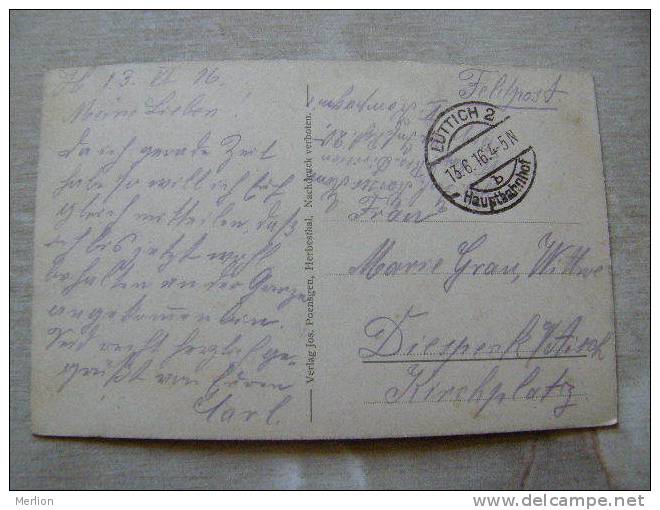 13. VI 16.
Meine Lieben
Da ich gerade Zeit
habe so will ich Euch
gleich mitteilen, daß
ich bis jetzt wohl
erhalten an der Grenze
angekommen bin.
Und recht herzlich ge-
grüßt von Eurem
Carl.
Verlag Jos. Poensgen, Herbesthal, Nachdruck verboten.
Feldpost.
LÜTTICH 2
13.6.16.4-5N
b
Hauptbahnhof
Frau
Marie Grau, Wittwe
Diespeck
Kirchplatz
Merlion
delcampe.net